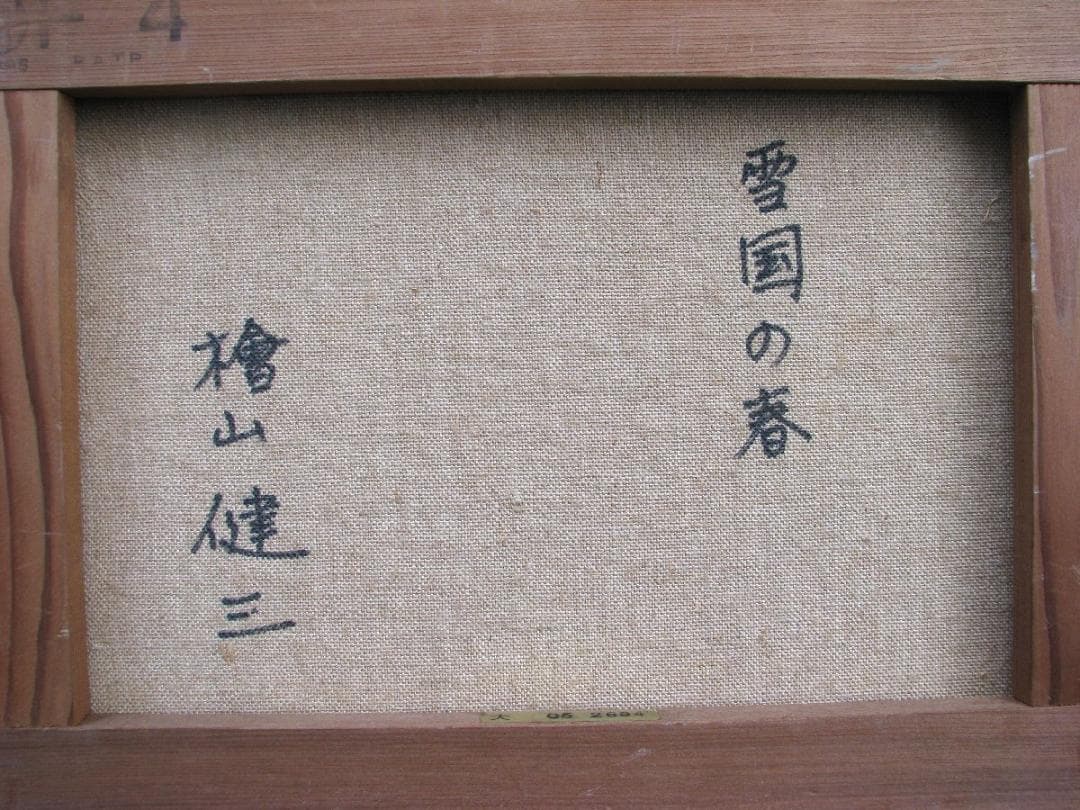 雪国の春
檜山健三
4
PATP
大 05 2694